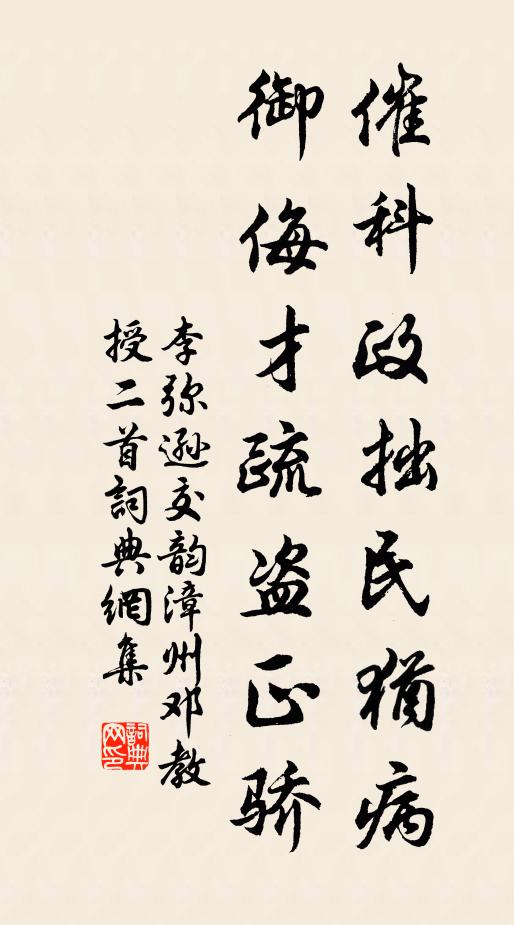 催科政拙民犹病
御侮才疏盗正骄
李弥逊次韵漳州邓教
授二首詞典網集
詞典网印